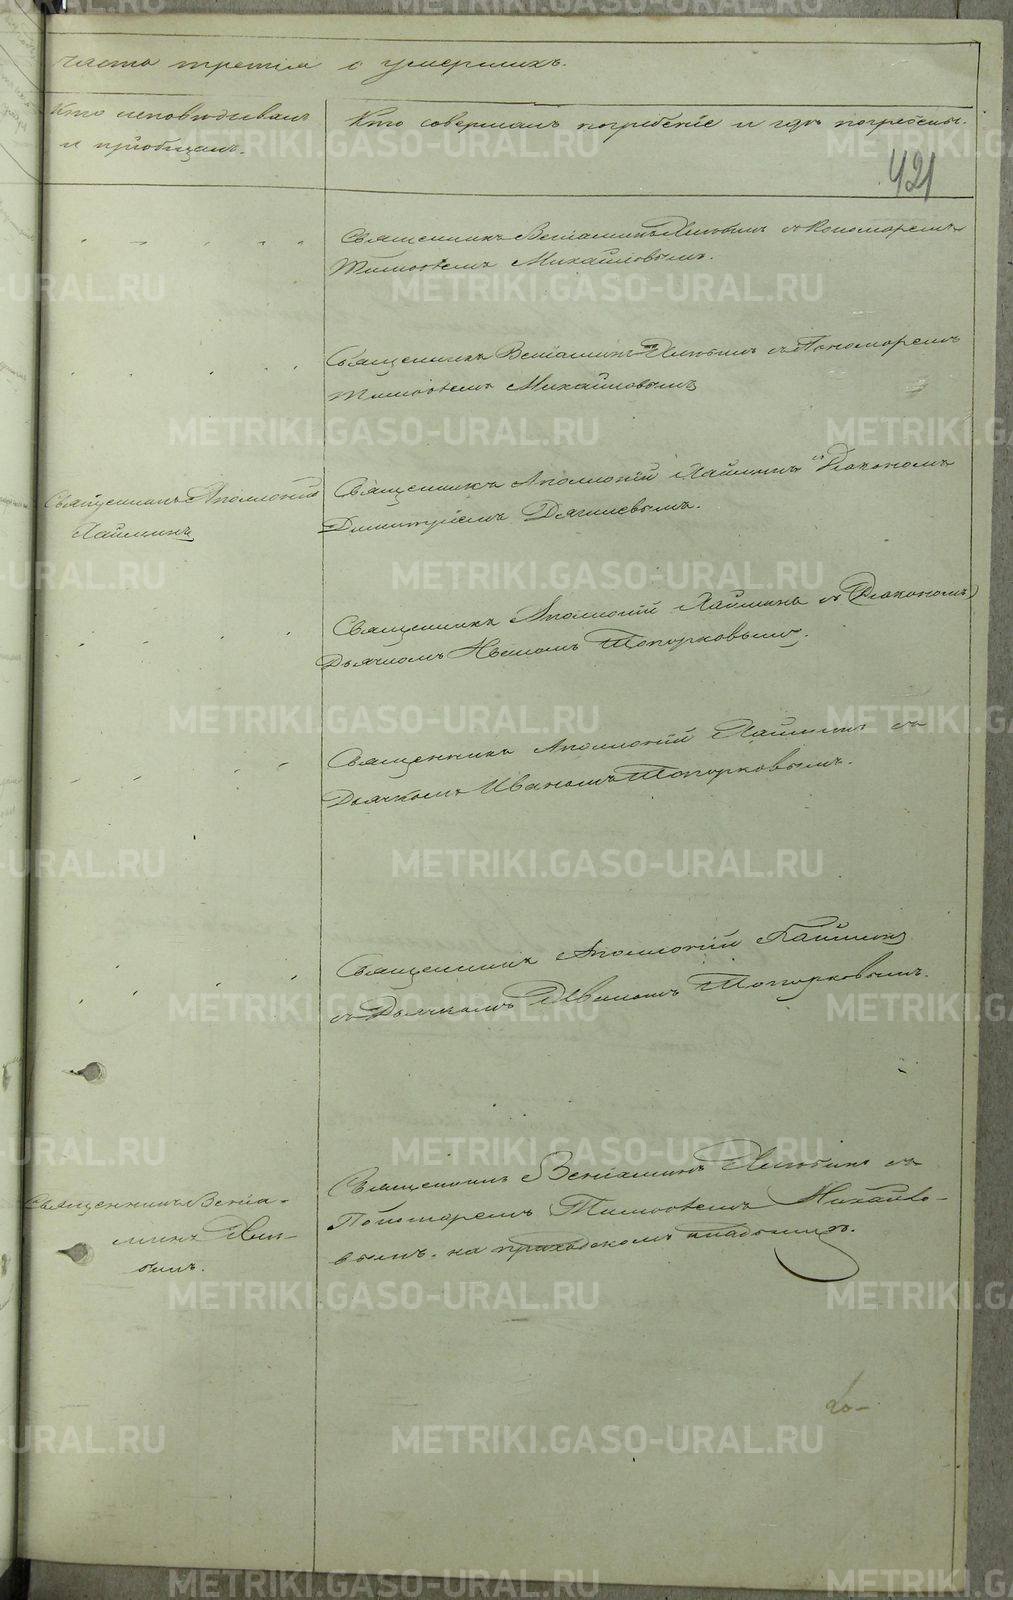 часть третія о умершихъ.
Кто исповѣдывалъ
и пріобщалъ.
Кто совершалъ погребеніе и гдѣ погребены.
421
Священникъ Веніаминъ съ Пономаремъ
Тимоѳеемъ Михайловымъ.
Священникъ Веніаминъ съ Пономаремъ
Тимоѳеемъ Михайловымъ
Священникъ Аполлоній
Священникъ Аполлоній съ Діакономъ
Димитріемъ Дягилевымъ.
Священникъ Аполлоній съ (Діакономъ)
Дьячкомъ Иваномъ Топорковымъ.
Священникъ Аполлоній съ
Дьячкомъ Иваномъ Топорковымъ.
Священникъ Аполлоній
съ Дьячкомъ Иваномъ Топорковымъ.
Священникъ Веніа-
минъ
Священникъ Веніаминъ съ
Пономаремъ Тимоѳеемъ Михайло-
вымъ. на приходскомъ кладбищѣ.
METRIKI.GASO-URAL.RU